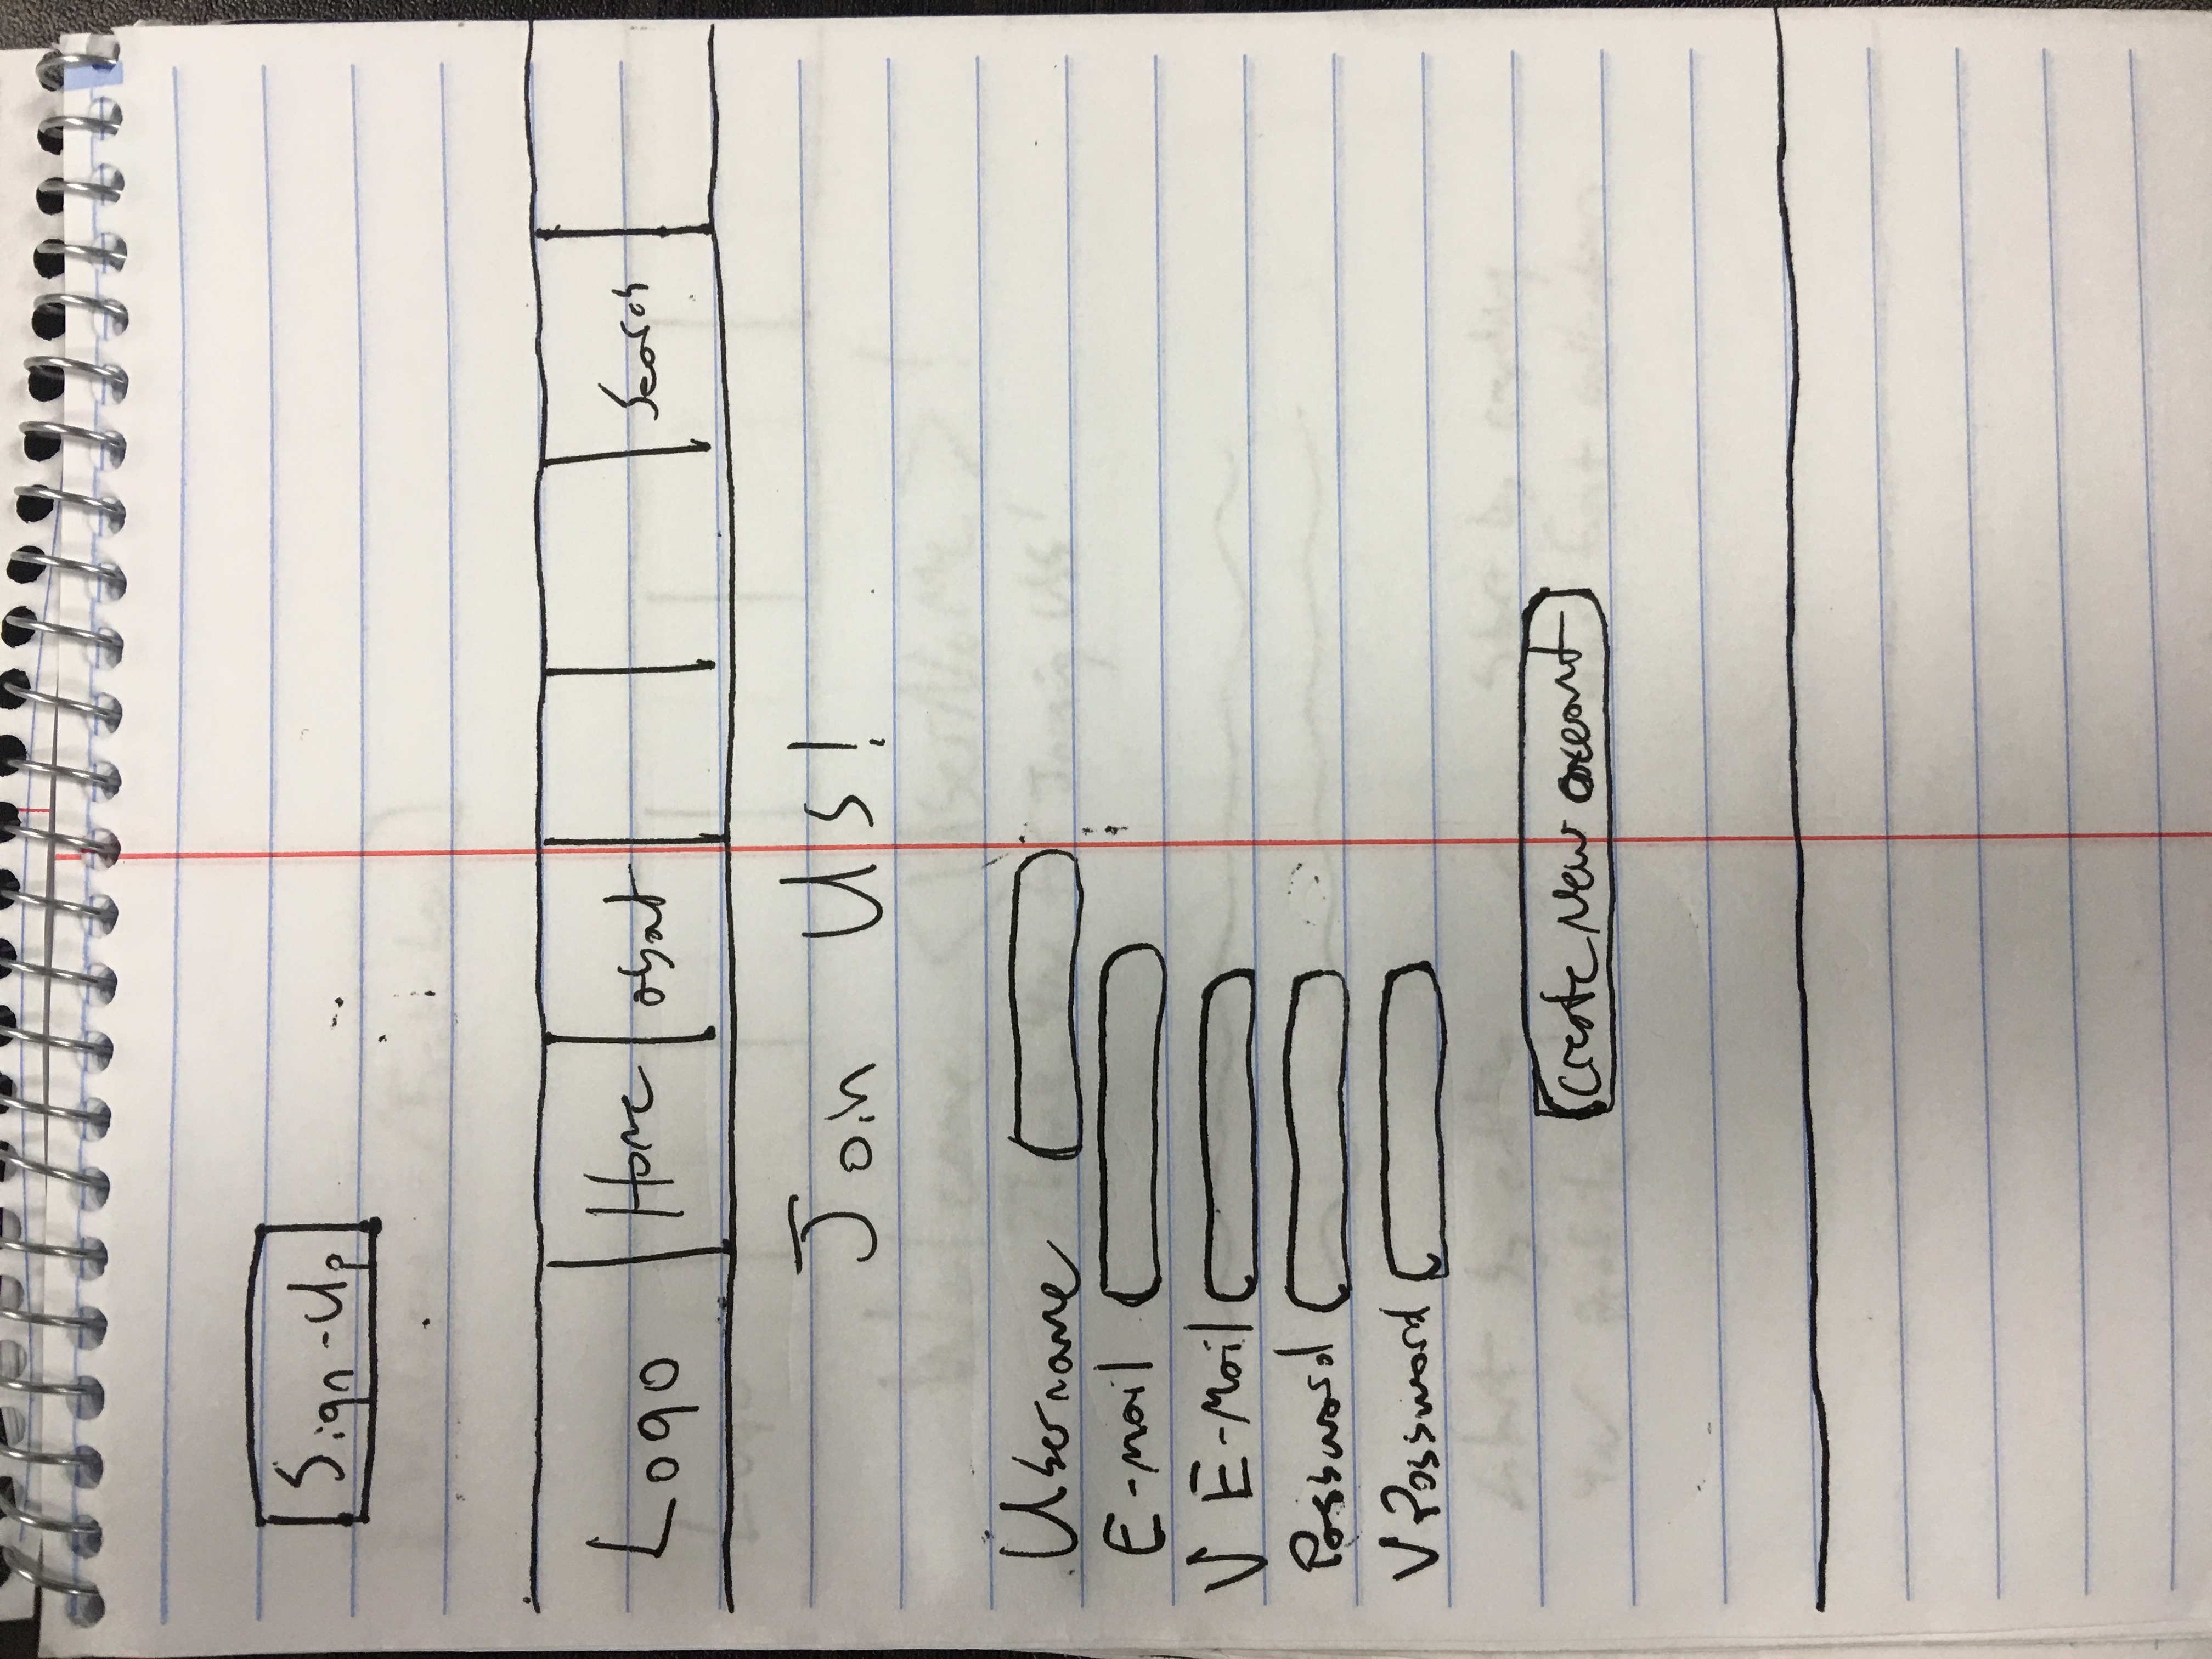 Sign-Up
Logo Home about Search
Join Us!
Username
E-mail
V E-Mail
Password
V Password
Create New account